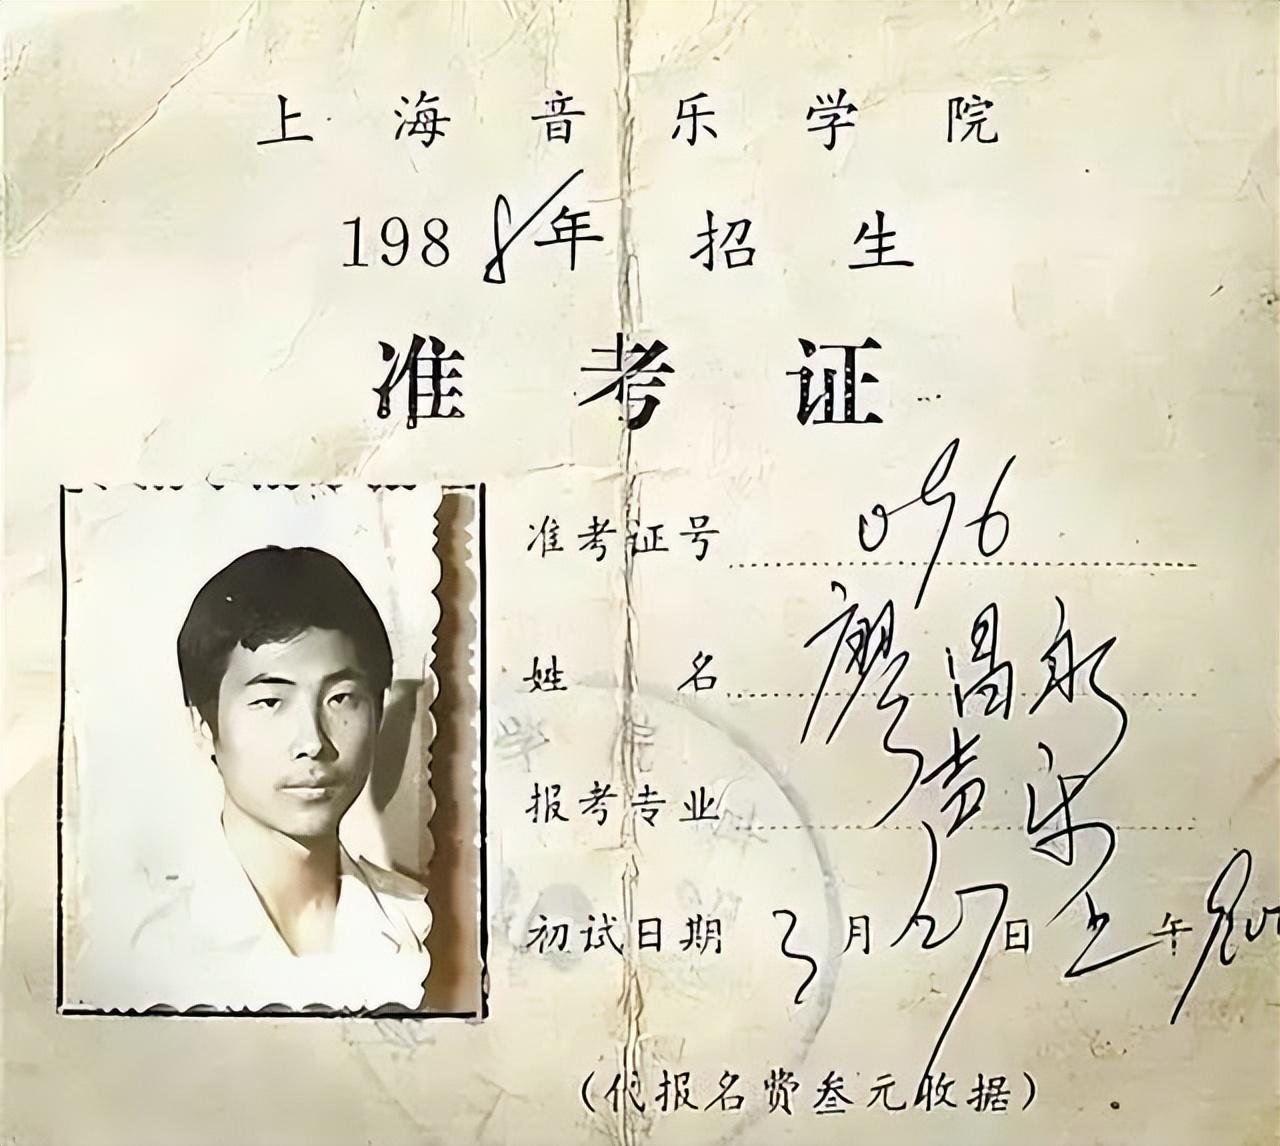 上海音乐学院
1988年招生
准考证
准考证号 096
姓名 廖昌永
报考专业 声乐
初试日期 3月27日上午8:00
(代报名费叁元收据)